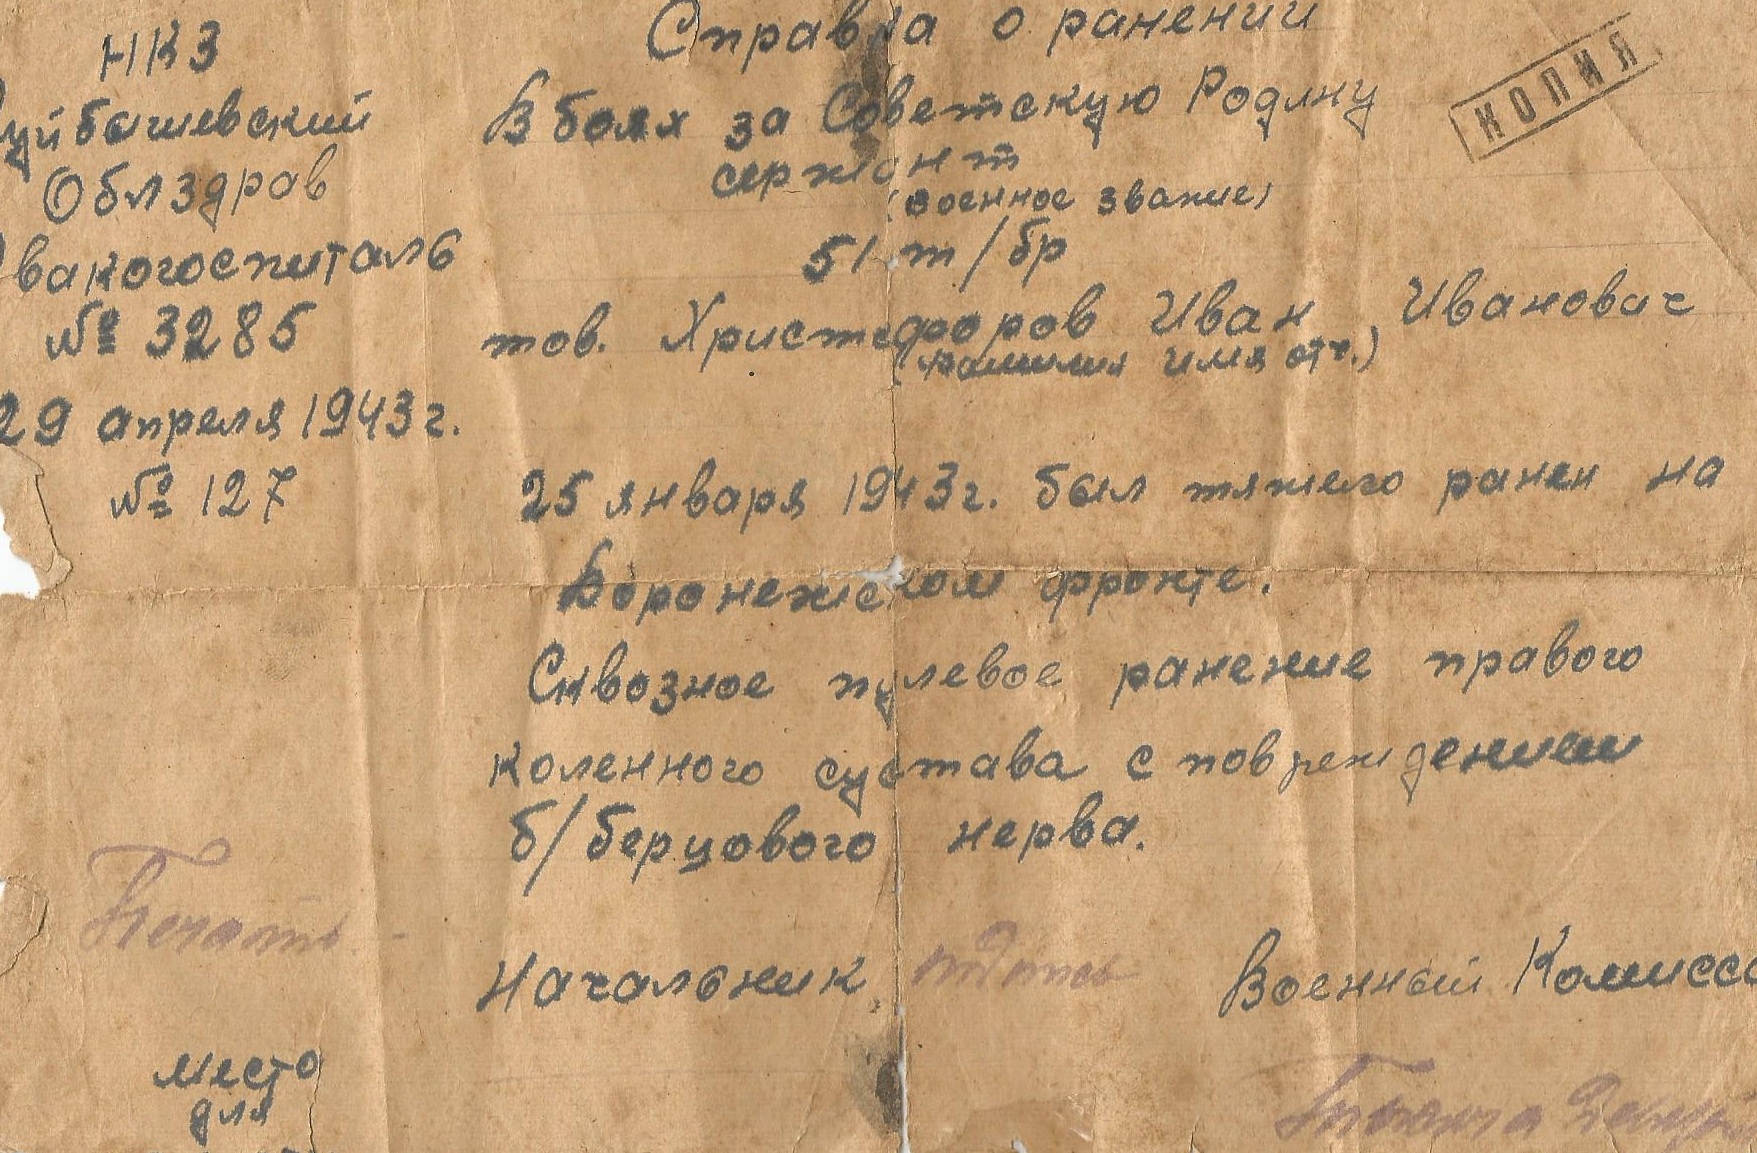 НКЗ
Куйбышевский
Облздрав
Эвакогоспиталь
№ 3285
29 апреля 1943 г.
№ 127
Справка о ранении
КОПИЯ
В боях за Советскую Родину
сержант
(военное звание)
51 т/бр
тов. Христофоров Иван Иванович
(фамилия имя отч.)
25 января 1943 г. был тяжело ранен на
Воронежском фронте.
Сквозное пулевое ранение правого
коленного сустава с повреждением
б/берцового нерва.
Печать
Начальник подпись Военный Комисса
место
для